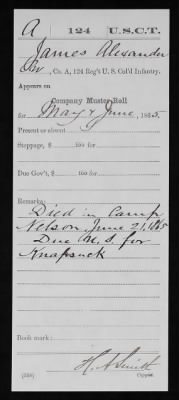 A 124 U.S.C.T.
James Alexander
Pvt, Co. A, 124 Reg't U. S. Col'd Infantry.
Appears on
Company Muster Roll
for May & June, 1865.
Present or absent
Stoppage, $ 100 for
Due Gov't, $ 100 for
Remarks:
Died in Camp
Nelson June 21, 1865
Due U.S. for
Knapsack
Book mark:
H. A. Smith
(358) Copyist.